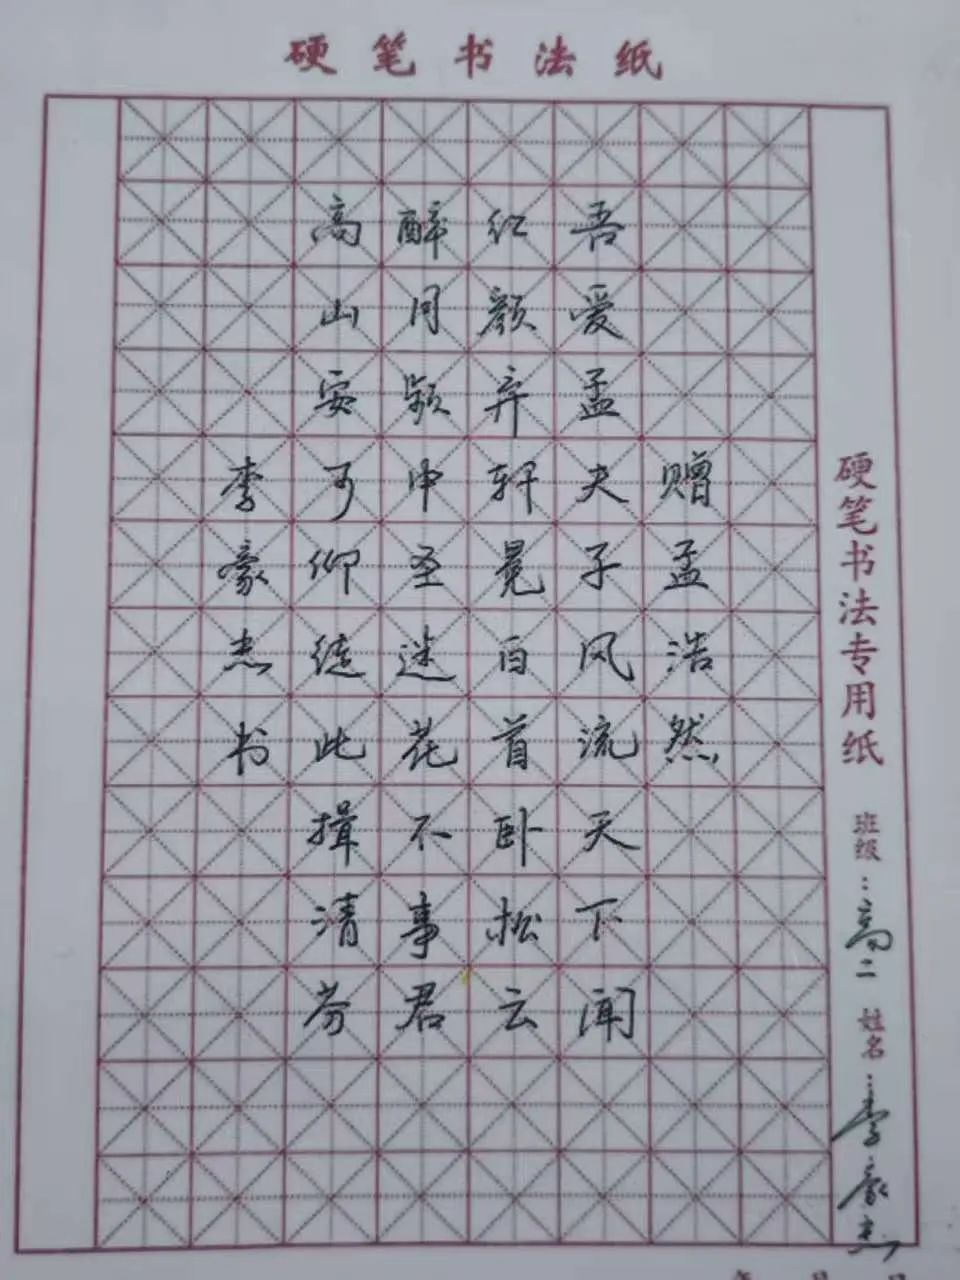 硬笔书法纸
硬笔书法专用纸 班级：高二 姓名：李豪杰
赠孟浩然
吾爱孟夫子风流天下闻
红颜弃轩冕白首卧松云
醉月频中圣迷花不事君
高山安可仰徒此揖清芬
李豪杰书